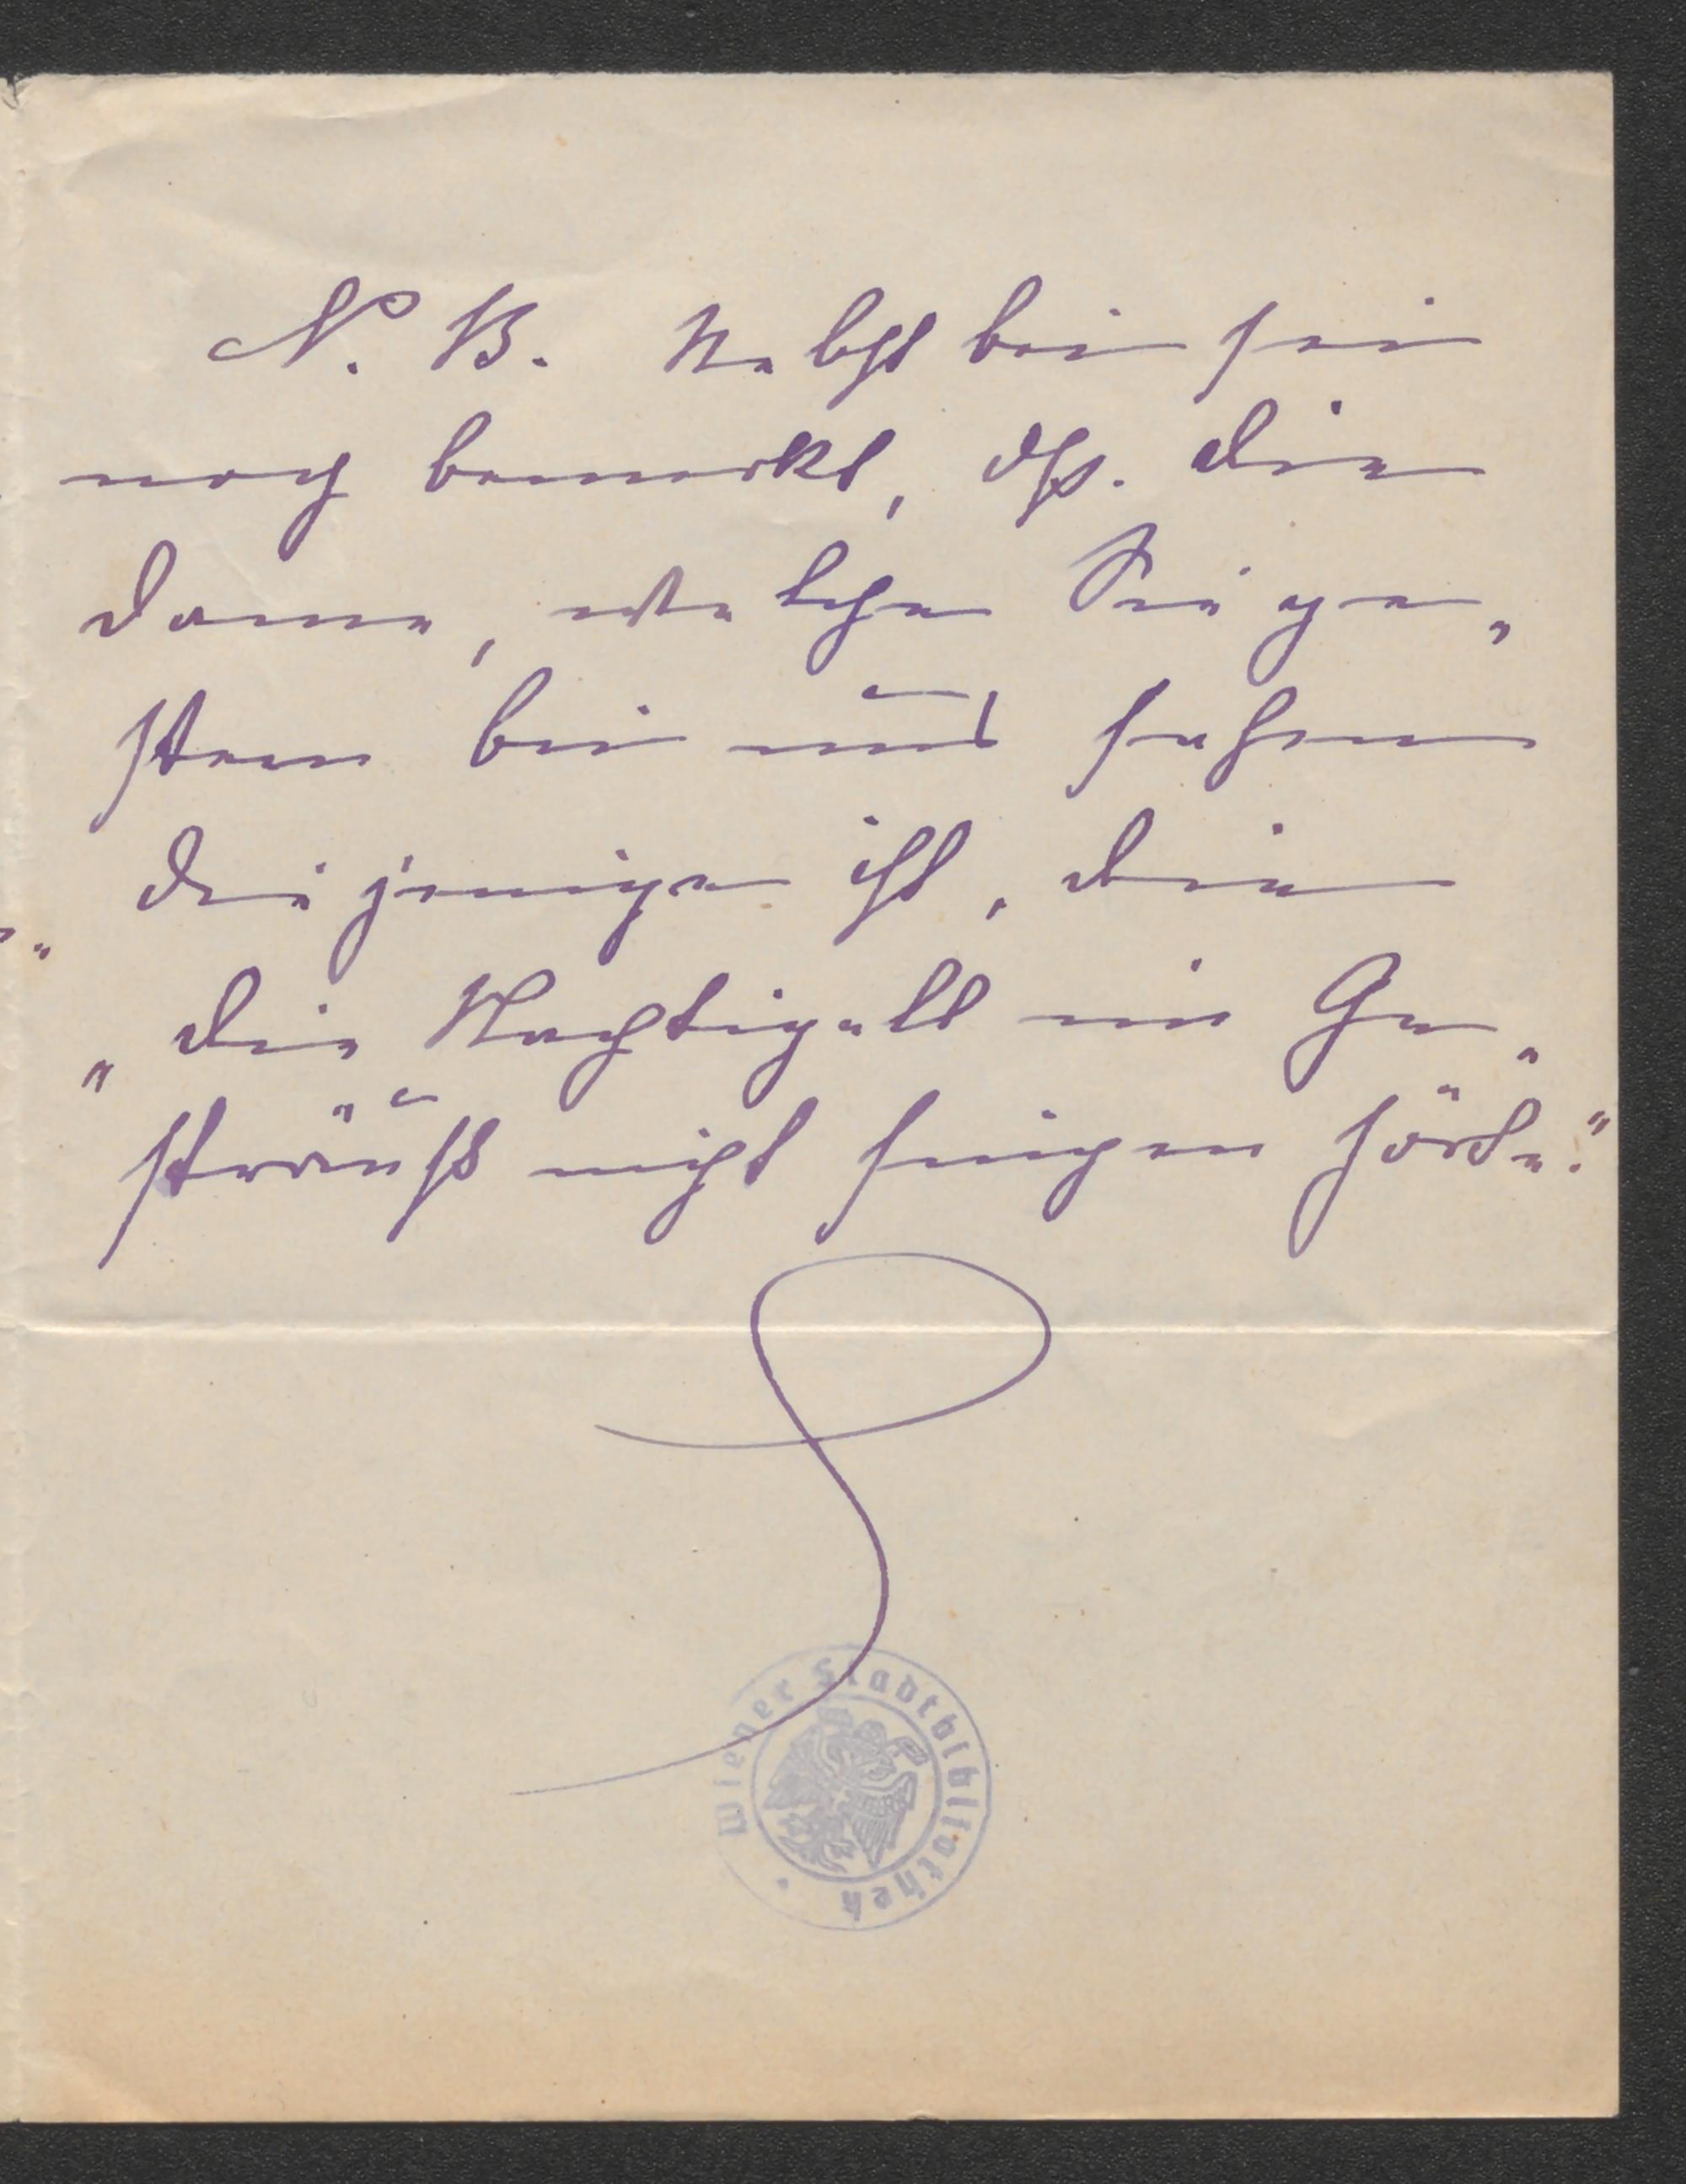 N. B. Nebstbei sei
noch bemerkt, dß. die
Dame, welche Sie ge„
stern bei uns sahen
diejenige ist, die
„die Nachtigall im Ge„
sträuß nicht singen hörte."
Wiener Stadtbibliothek